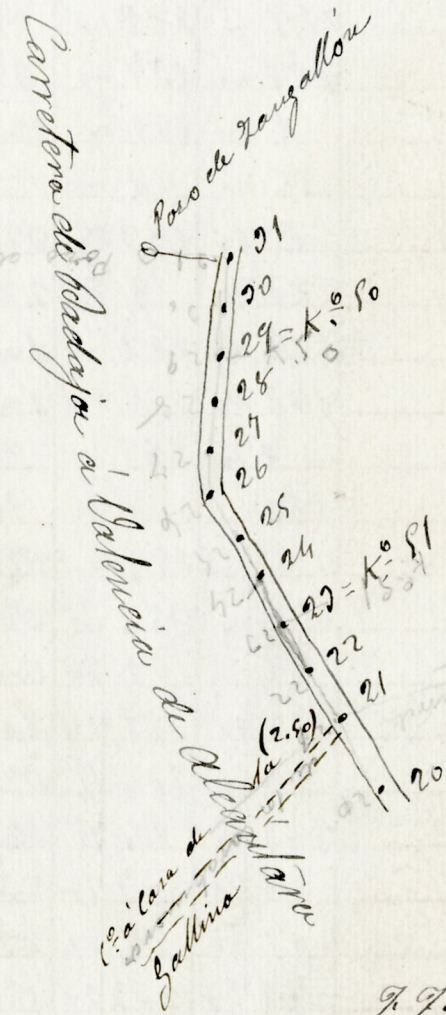 Carretera de Badajoz á Valencia de Alcántara
Poso de Zangallón
31
30
29 = K.º 50
28
27
26
25
24
23 = K.º 51
22
21
20
(2.50)
C.º á Casa de la
Gallina